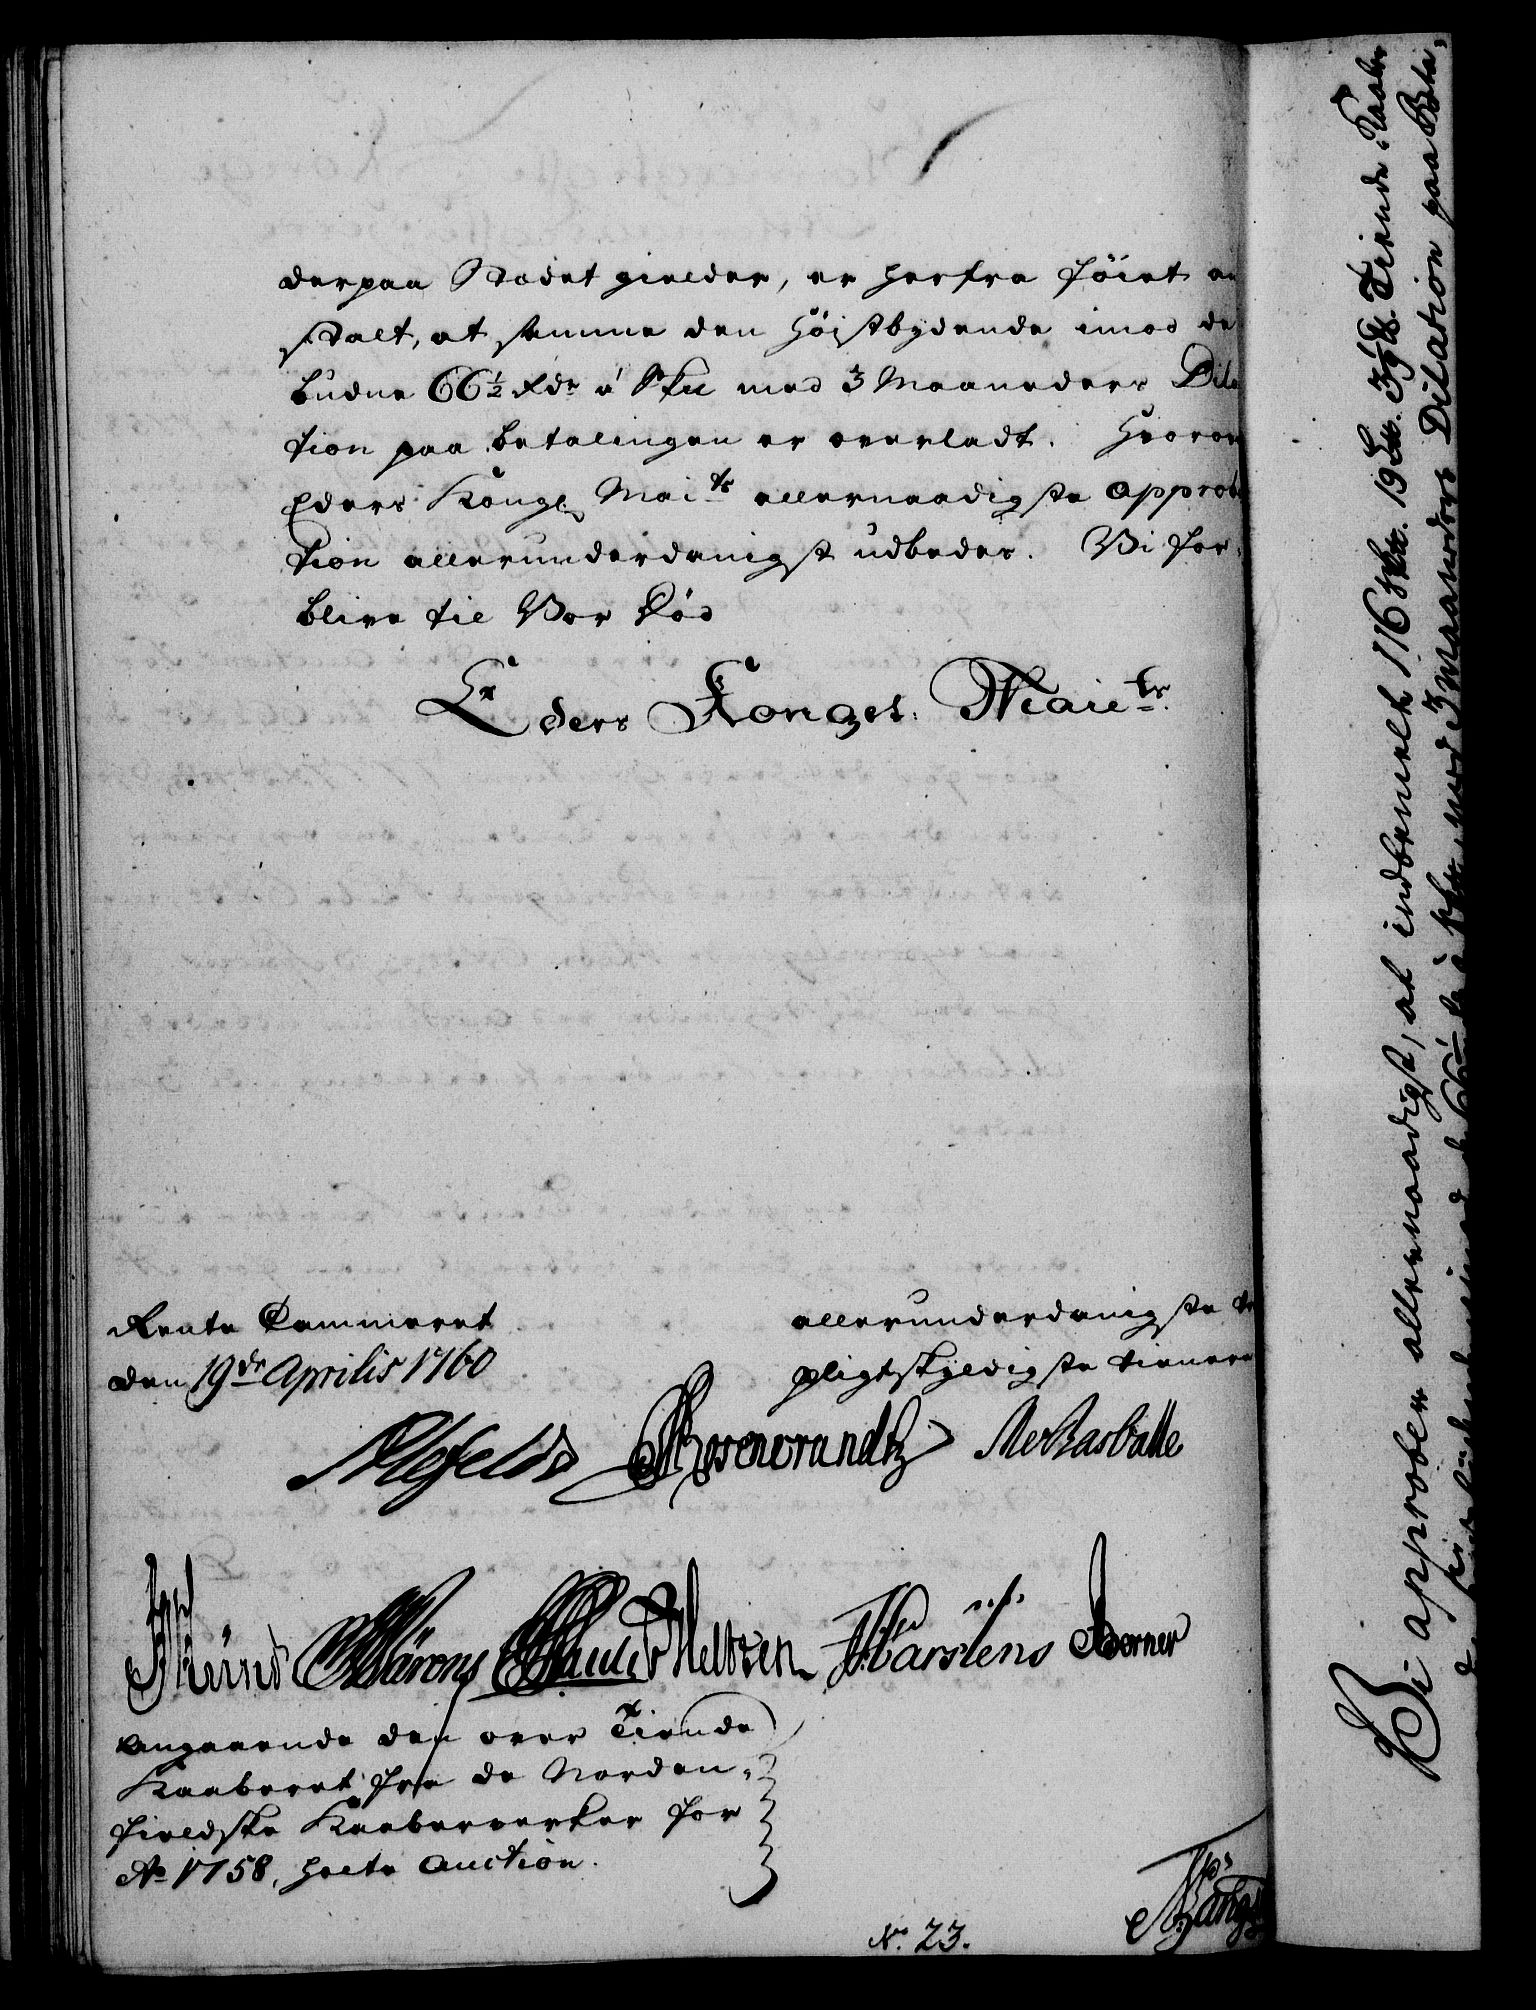 derpaa Stedet gielder, er herfra føiet an
stalt, at samme den Høistbydende imod de
budne 66½ Rdr á Sku med 3 Maaneders Dila
tion paa betalingen er overladt. Hvorom
Eders Kongl Mai.ts allernaadigste approba
tion allerunderdanigst udbedes. Vi for,
blive til Vor Død
Eders Kongel. Maie.ts
Rente Cammeret
den 19de Aprilis 1760
allerunderdanigste
pligtskyldigste tienere
Alefeldt Rosencrandtz
Holtzen Karstens Berner
Angaaende den over Tiende
Kaaberet fra de Norden,
fieldske Kaaberverker for
Ao 1758, holte Auction.
No. 23.
Vi approbere allernaadigst, at indbemelte 116 Sku. 19 Lu. 3½ . Tiende Kaaber
imod de 66½ á Sku, med 3 Maaneders Dilation paa Beta,